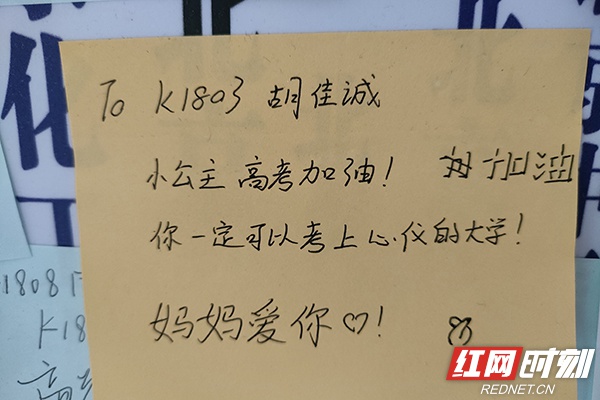 To K1803 胡佳诚
小公主高考加油! 加油
你一定可以考上心仪的大学!
妈妈爱你♡!
1808
K18
高考
红网时刻
REDNET.CN